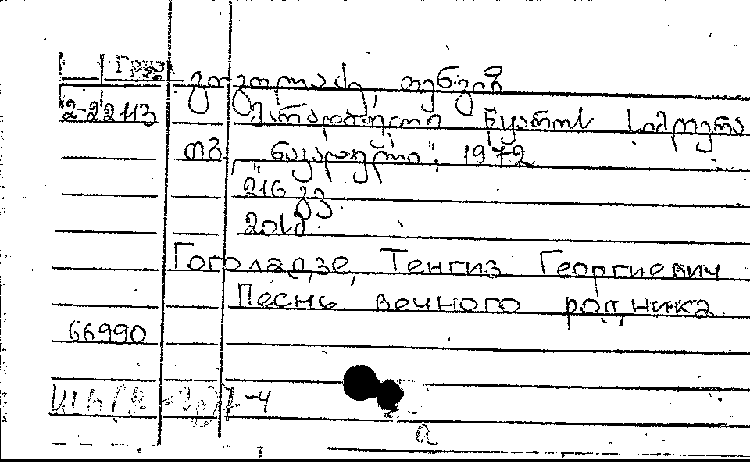 Груз
გოგოლაძე, თენგიზ
2-22113 მარადიული წყაროს სიმღერა
თბ. "ნაკადული", 1972
216 გვ.
Гоголадзе, Тенгиз Георгиевич
Песнь вечного родника
66990